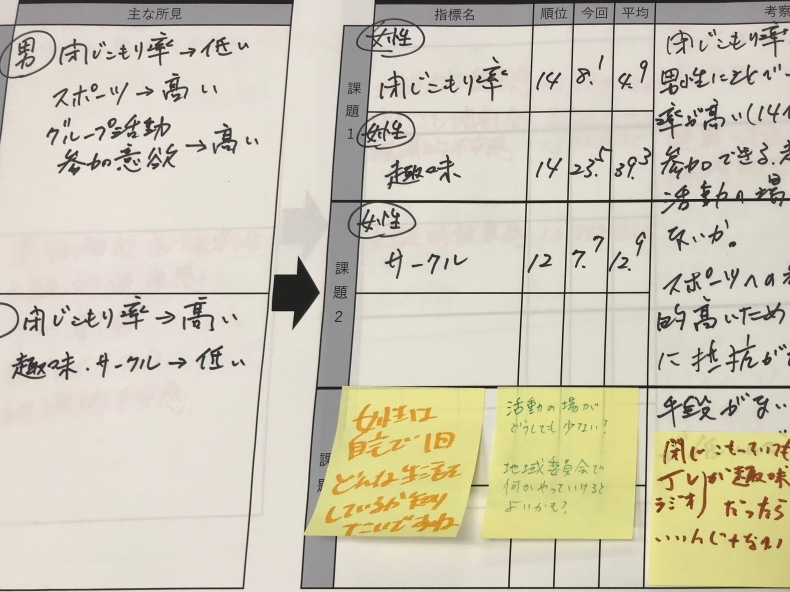 主な所見
男 閉じこもり率→低い
スポーツ→高い
グループ活動
参加意欲→高い
閉じこもり率→高い
趣味・サークル→低い
指標名 順位 今回 平均 考察
課題1
女性
閉じこもり率 14 8.1 4.9
女性
趣味 14 23.5 39.3
課題2
女性
サークル 12 7.7 12.9
閉じこもり率
男性にくらべ
率が高い(14
参加できる
活動の場
ないか。
スポーツへの
的高いため
に抵抗が
年齢がない
課
女性は
自宅で1日
どんな生活を
しているか知り
たいですね
活動の場が
どうしても少ない?
地域委員会で
何かやっていけると
よいかも?
閉じこもっていても
TVが趣味
ラジオ だったら
いいんじゃない